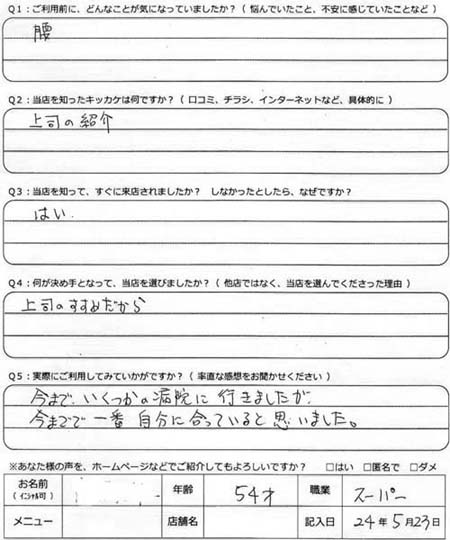 Q1：ご利用前に、どんなことが気になっていましたか？（ 悩んでいたこと、不安に感じていたことなど ）
腰
Q2：当店を知ったキッカケは何ですか？（ 口コミ、チラシ、インターネットなど、具体的に ）
上司の紹介
Q3：当店を知って、すぐに来店されましたか？　しなかったとしたら、なぜですか？
はい.
Q4：何が決め手となって、当店を選びましたか？（ 他店ではなく、当店を選んでくださった理由 ）
上司のすすめだから
Q5：実際にご利用してみていかがですか？（ 率直な感想をお聞かせください ）
今まで、いくつかの病院に行きましたが、
今までで一番自分に合っていると思いました。
※あなた様の声を、ホームページなどでご紹介してもよろしいですか？　□はい　□匿名で　□ダメ
お名前（ｲﾆｼｬﾙ可） 年齢 54才 職業 スーパー
メニュー 店舗名 記入日 24年5月23日